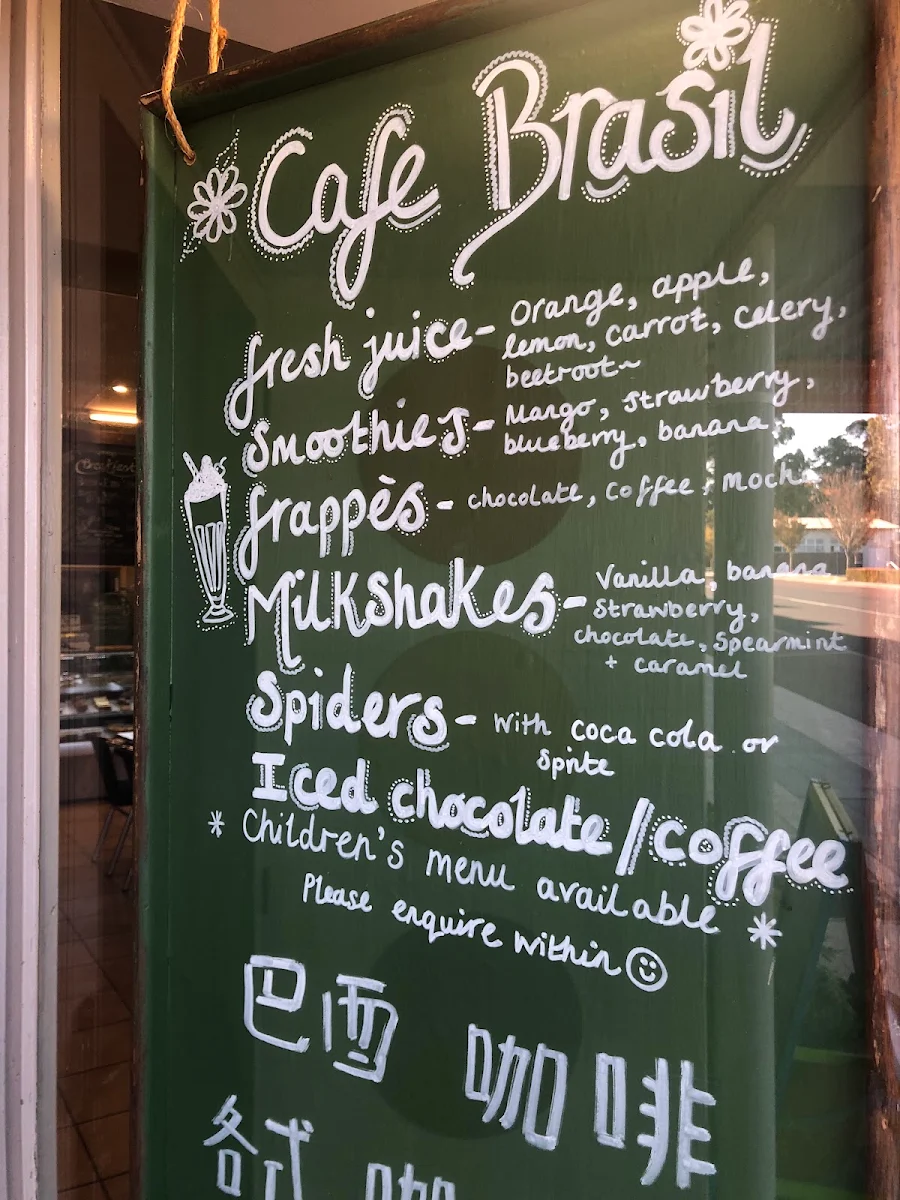 Cafe Brasil
fresh juice - Orange, apple,
lemon, carrot, celery,
beetroot~
Smoothies - Mango, strawberry,
blueberry, banana
frappès - chocolate, coffee, mocha
Milkshakes - Vanilla, banana
strawberry,
chocolate, spearmint
+ caramel
Spiders - with coca cola or
Sprite
Iced chocolate/coffee
* Children's menu available *
Please enquire within
巴西 咖啡
各式 咖